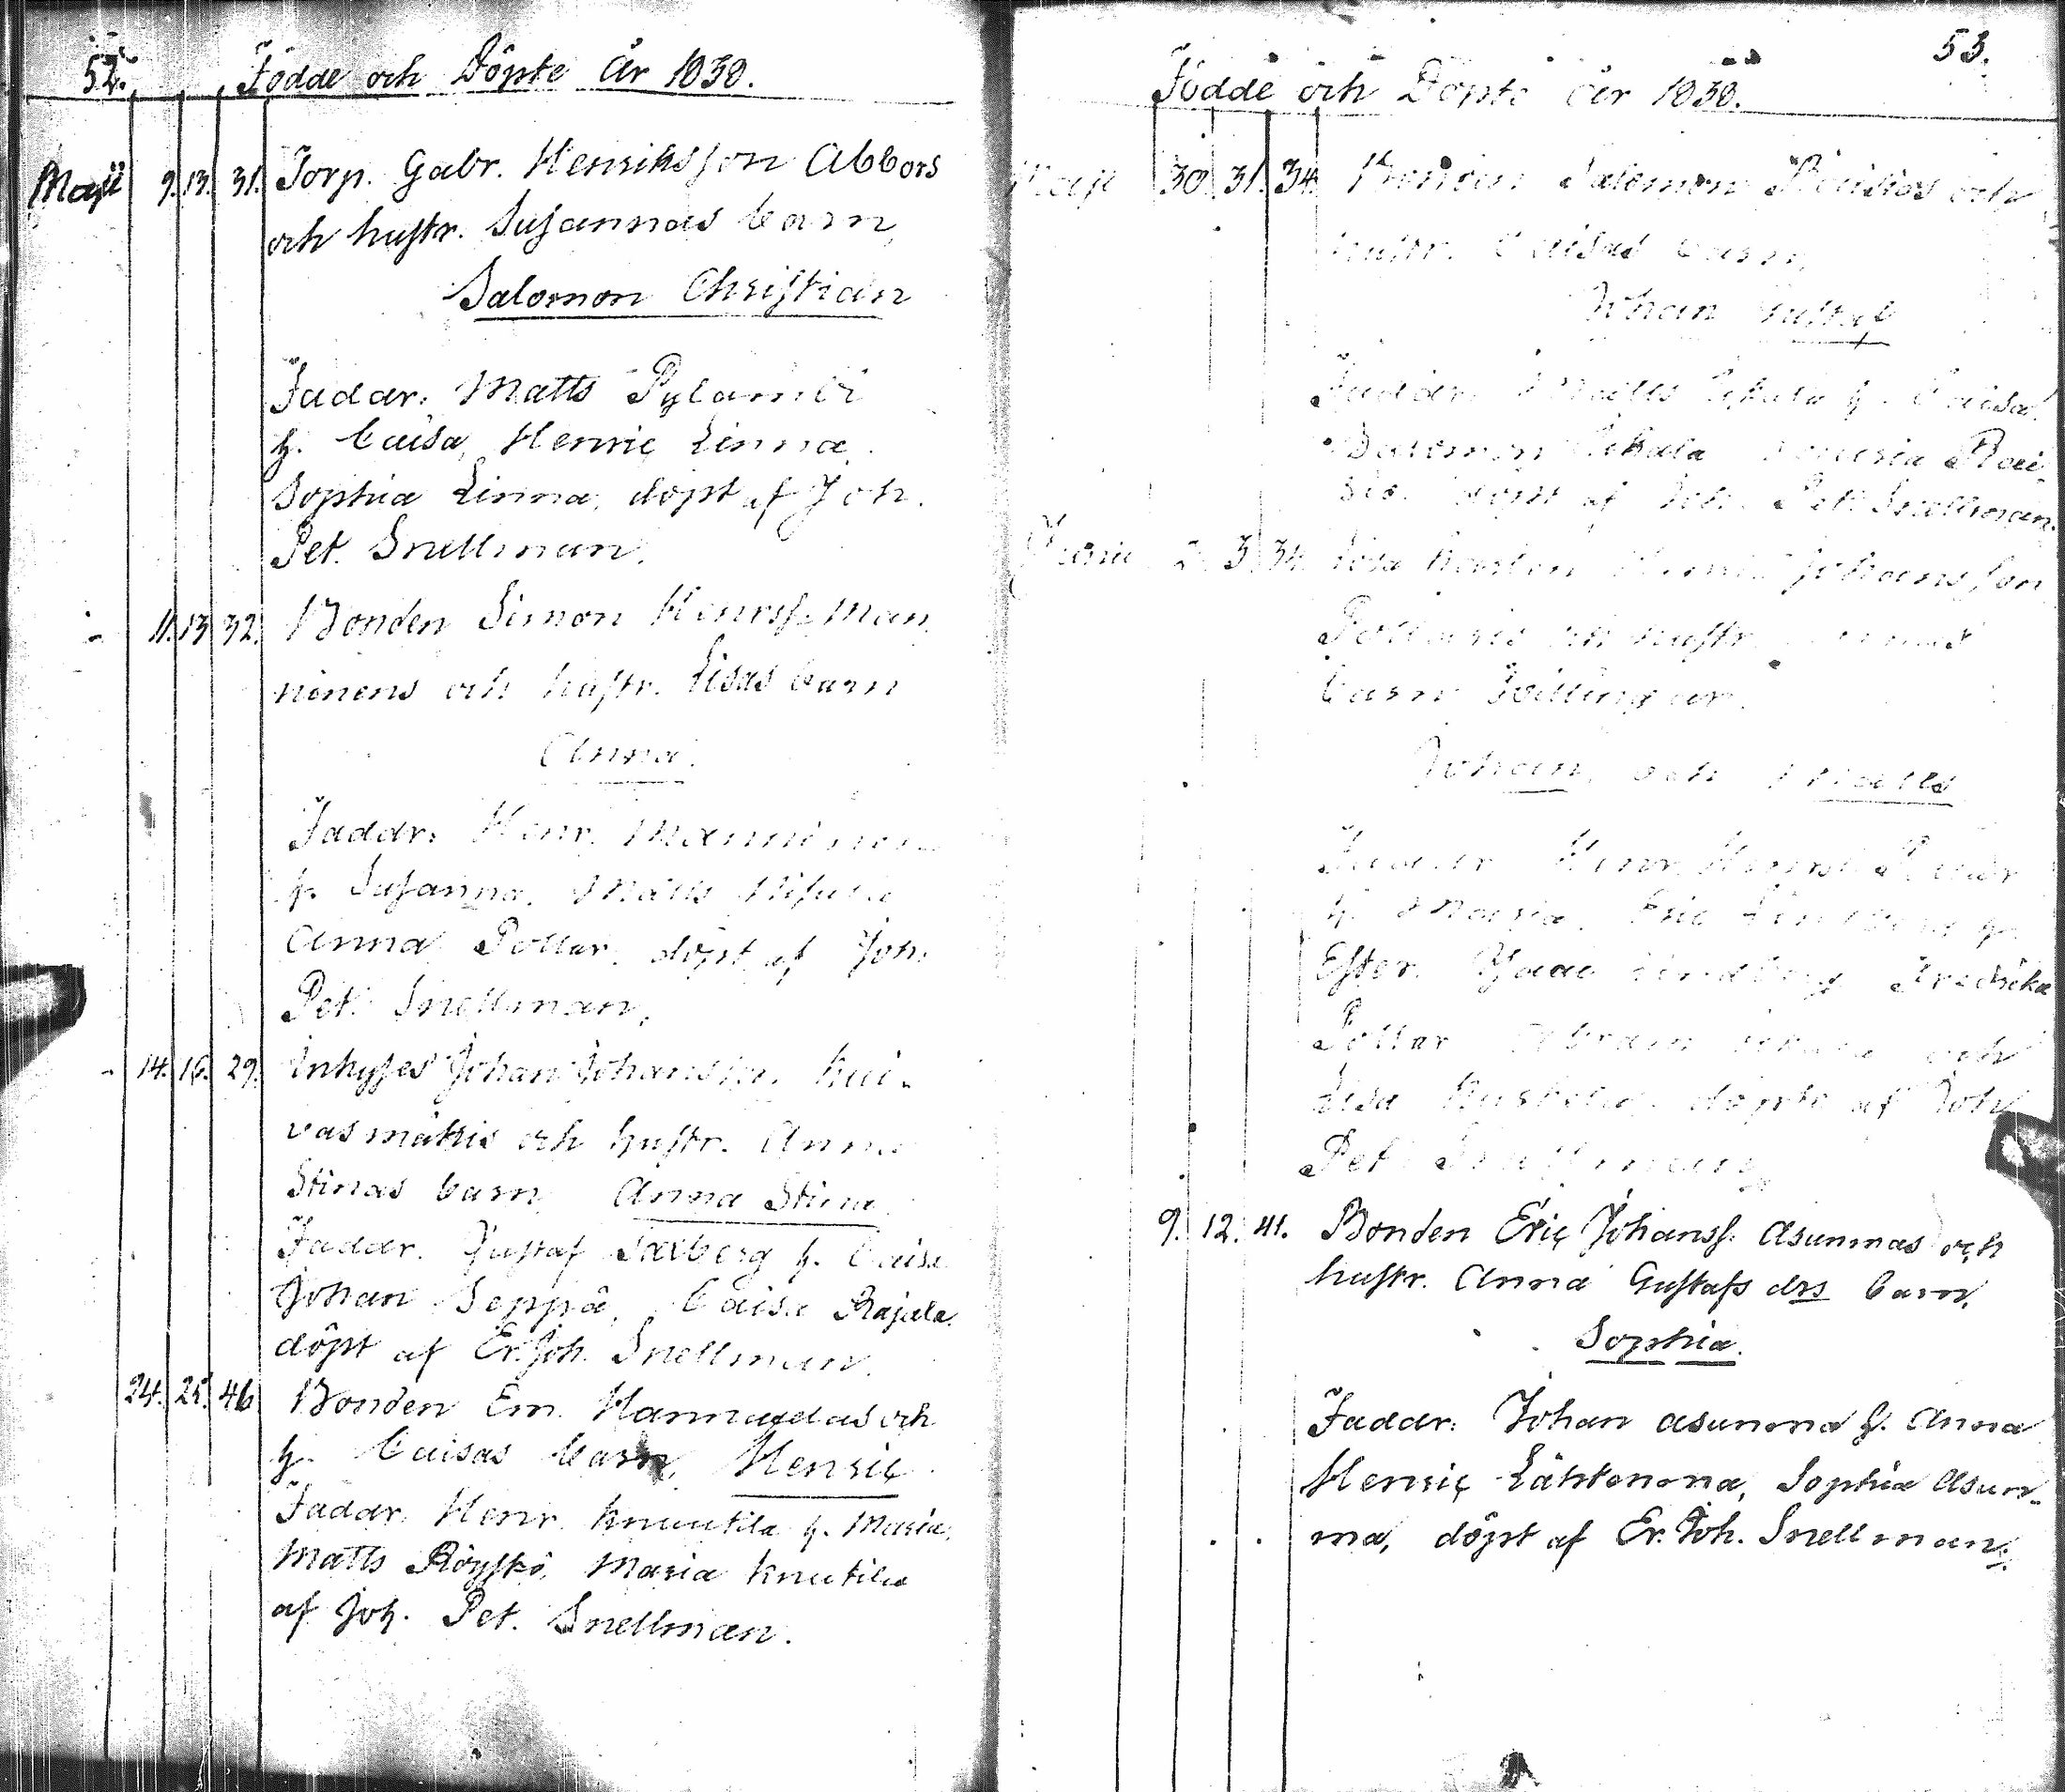 52.
Födde och Döpte År 1830.
Maji 9. 13. 31. Torp. Gabr. Henriksson Abbors
och hustr. Susannas barn,
Salomon Christian
Faddr. Matts
h. Caisa, Henric Linna,
Sophia Linna, döpt af Joh.
Pet. Snellman.
- 11. 13 32. Bonden Simon Henrss. Man
ninens och hustr. Lisas barn
Anna.
Faddr. Henr. Manninen
h. Susanna, Matts
Anna Pollar, döpt af Joh.
Pet. Snellman,
- 14. 16. 29. Inhyses Johan Johanss. Kui-
vasmäkis och hustr. Anna
Stinas barn, Anna Stina.
Faddr. Gustaf Saxberg h. Caisa
Johan Seppä, Caisa Rajala.
döpt af Er. Joh. Snellman.
24. 25. 46 Bonden Em. Hannukelas och
h. Caisas barn, Henric
Faddr. Henr. Knuutila h. Maria,
Matts Röyskö, Maria Knutila
af Joh. Pet. Snellman.
53.
Födde och Döpte år 1830.
Maji 30. 31. 34. Bonden Salomon och
hustr. Caisas barn,
Johan Gustaf
Faddr. Matts h. Caisa,
Salomon Maria
döpt af Joh. Pet. Snellman.
Junii 2. 3. 34. Johansson
och hustr.
barn Tvillingar.
Johan, och Matts
Faddr. Henr.
h. Maria, Eric h.
Ester. Isaac Lindberg, Fredrika
Pollar och
Lisa döpte af Joh
Pet. Snellman,
9. 12. 41. Bonden Eric Johanss. Asunmas och
hustr. Anna Gustafs drs barn,
Sophia.
Faddr: Johan Asunma h. Anna
Henric Lähtenma, Sophia Asun-
ma, döpt af Er. Joh. Snellman.